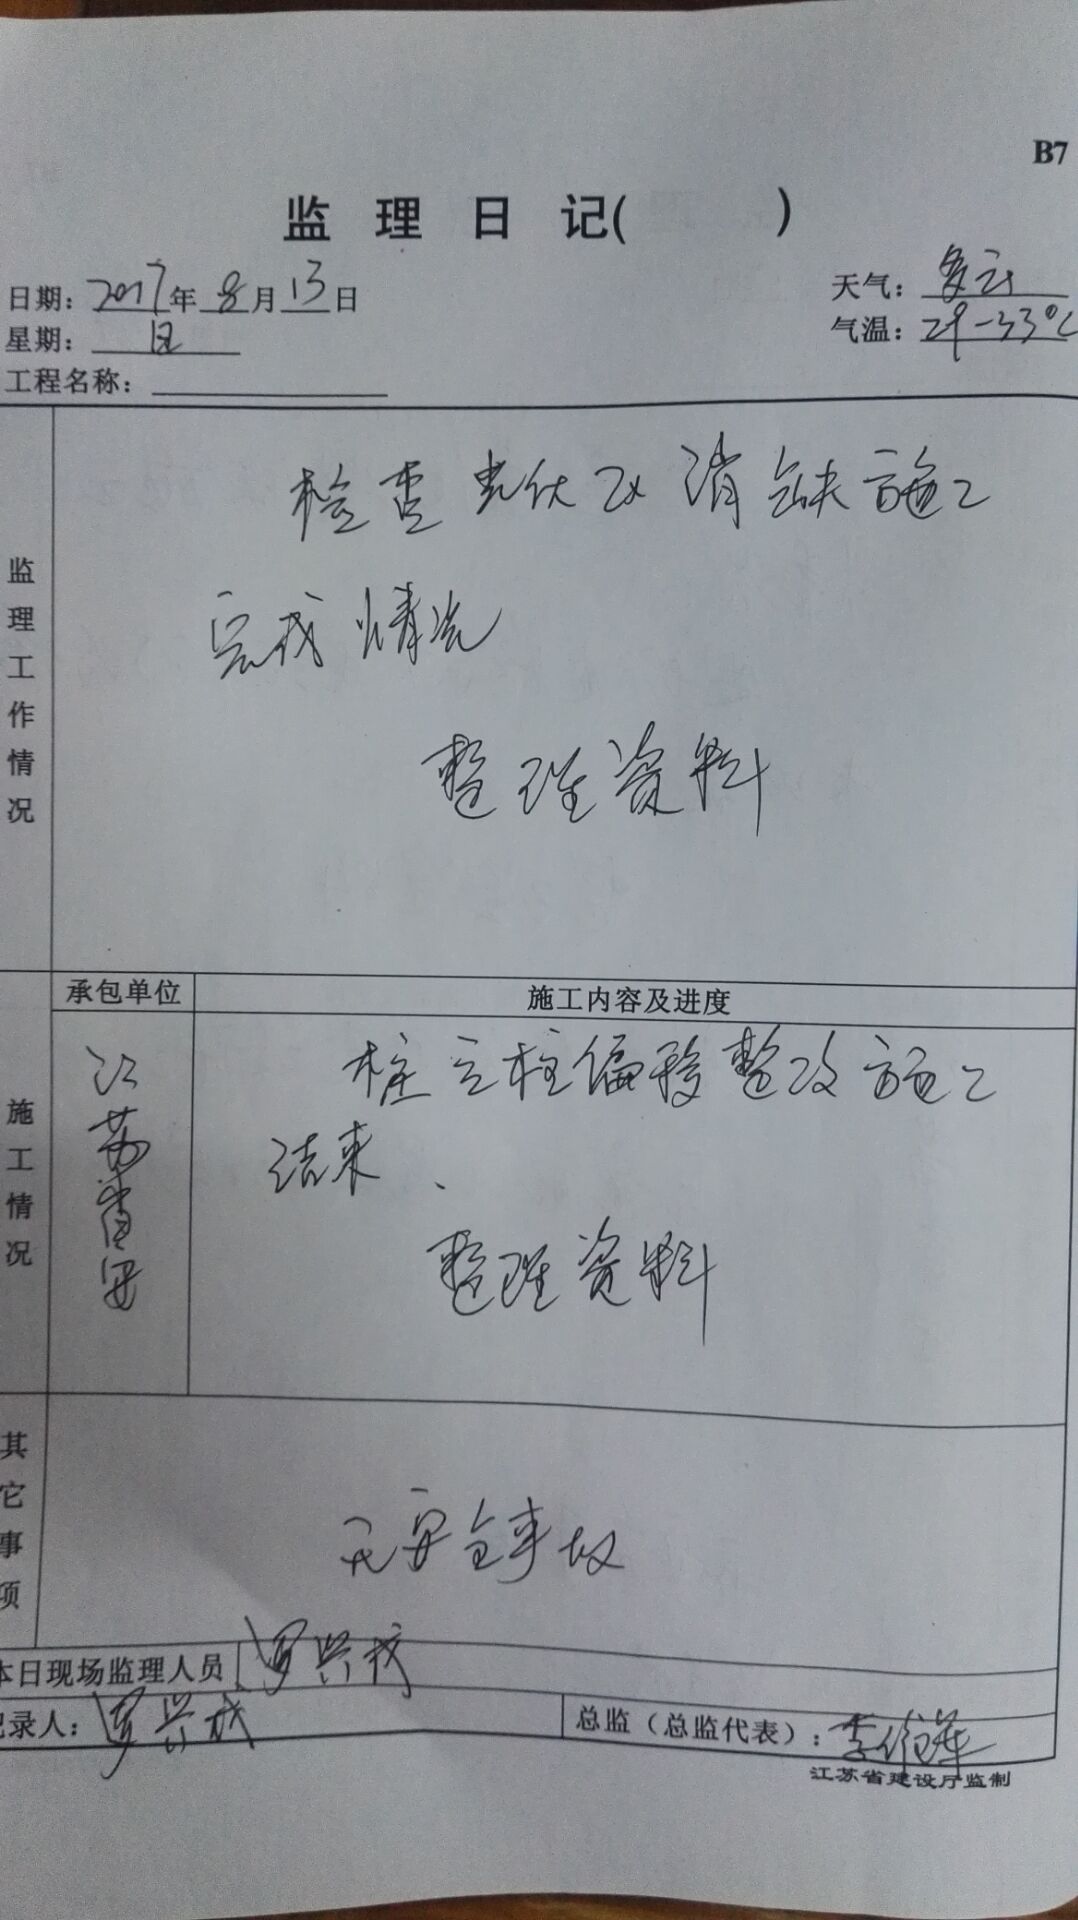 B7
监 理 日 记( )
日期：2017年8月13日
天气：多云
星期：日
气温：29-33℃
工程名称：
监理工作情况
检查光伏区消缺施工
完成情况
整理资料
承包单位
施工内容及进度
施工情况
江苏
桩立柱偏移整改施工
结束、
整理资料
其它事项
无安全事故
本日现场监理人员
罗兴成
记录人：罗兴成
总监（总监代表）：李
江苏省建设厅监制